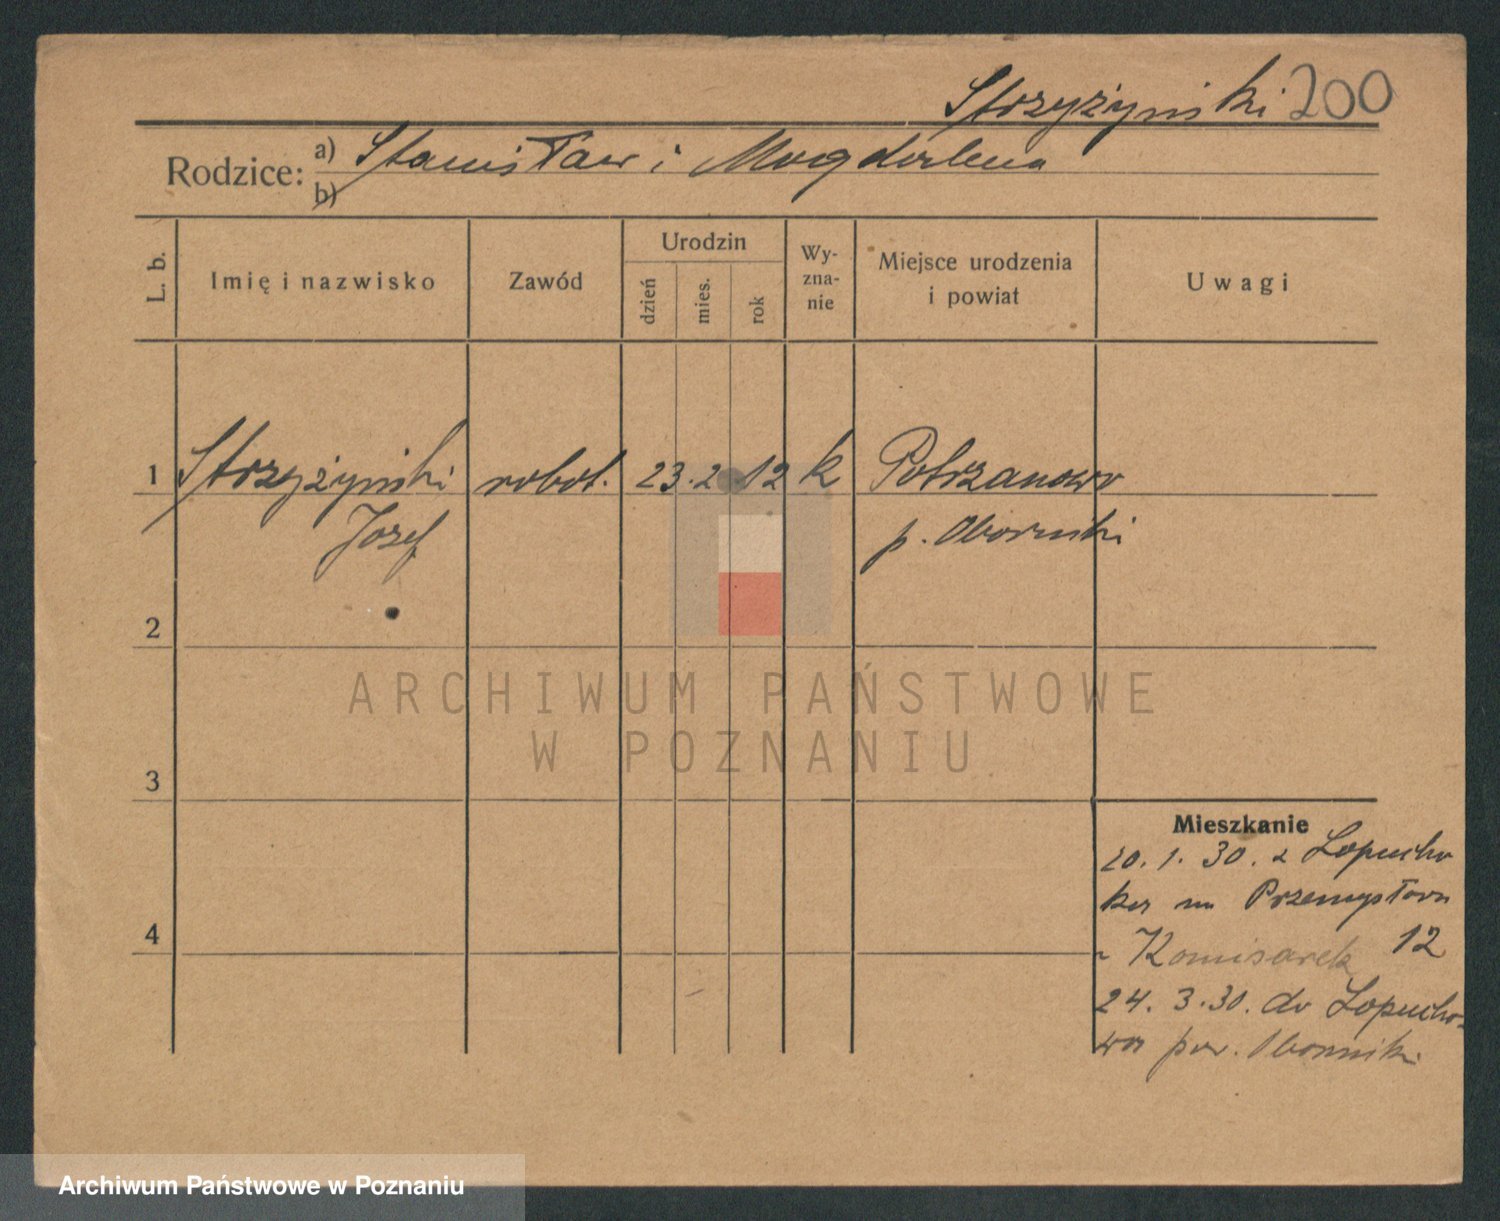 Strzyżyński 200
Rodzice: a) Stanisław i Magdalena
b)
L. b. Imię i nazwisko Zawód Urodzin dzień mies. rok Wy-zna-nie Miejsce urodzenia i powiat Uwagi
1 Strzyżyński robot. 23. 2 12 k Potrzanowo
Józef p. Obornicki
2
3
4
Mieszkanie
20. 1. 30. z Łopucho
ka na Przemysłowa
Komisarek 12
24. 3. 30. do Łopucho-
wa pow. Oborniki
ARCHIWUM PAŃSTWOWE
W POZNANIU
Archiwum Państwowe w Poznaniu